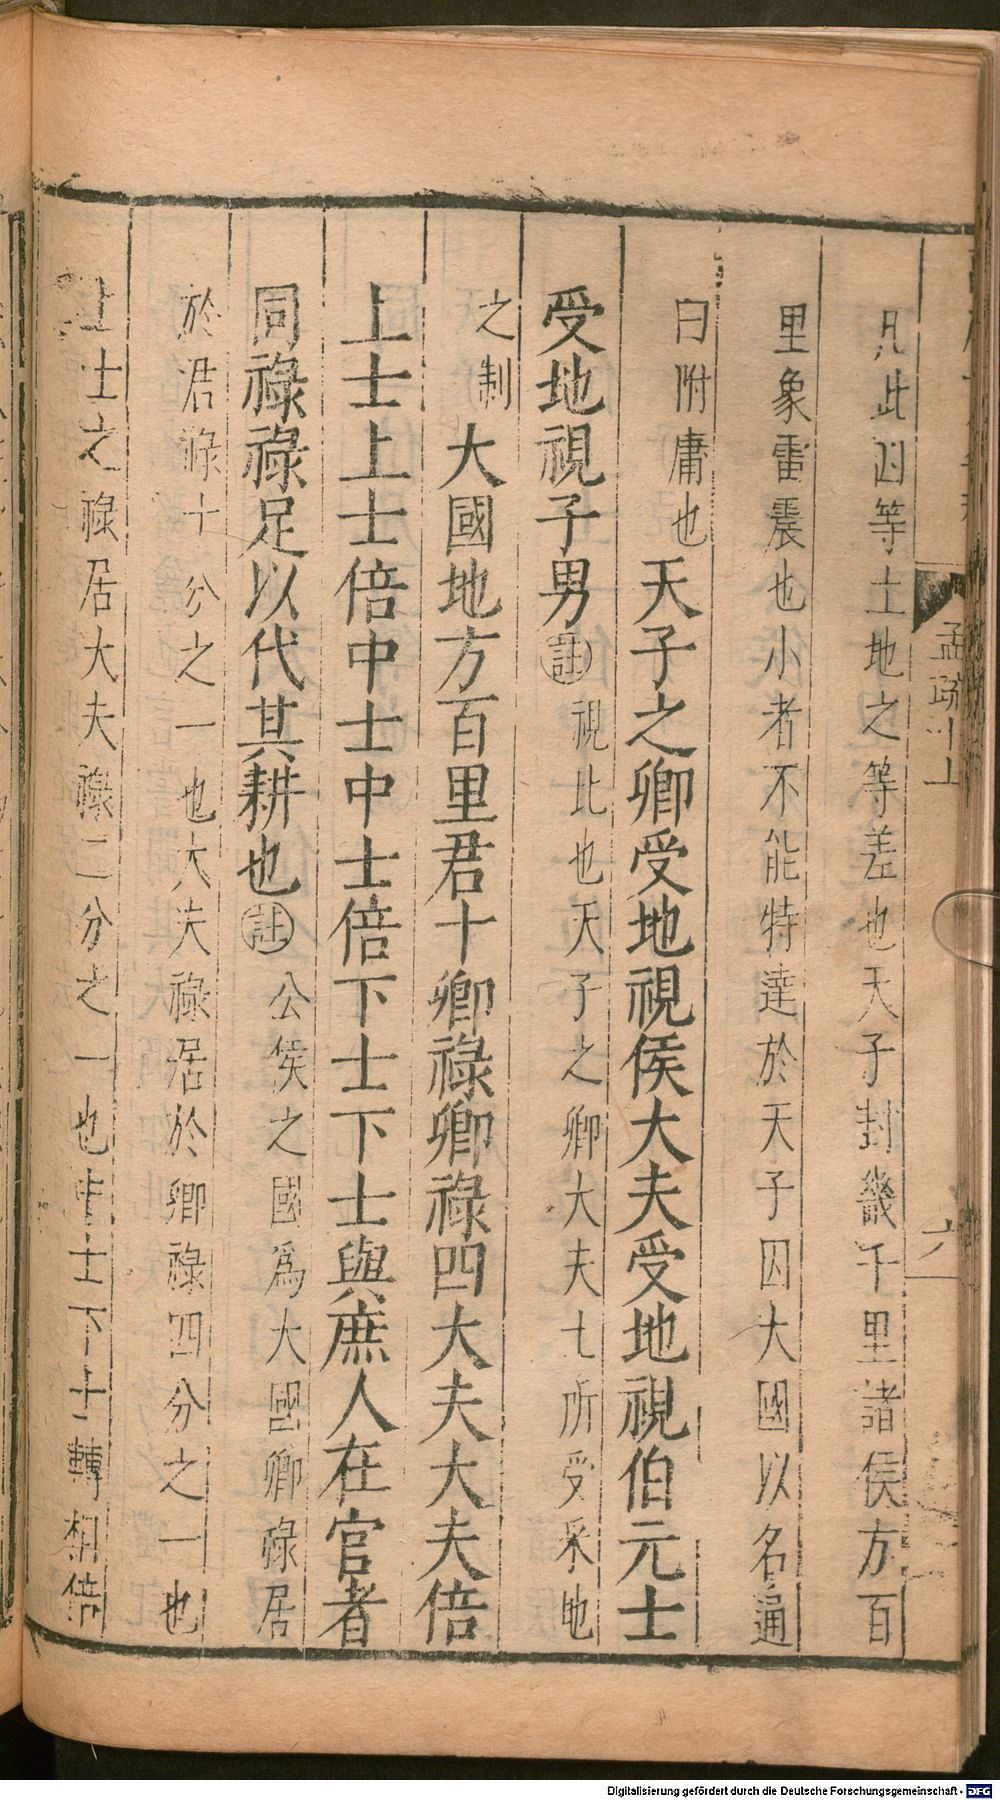 凡此四等土地之等差也天子封畿千里諸侯方百
里象雷震也小者不能特達於天子因大國以名通
曰附庸也天子之卿受地視侯大夫受地視伯元士
受地視子男註視比也天子之卿大夫士所受采地
之制大國地方百里君十卿祿卿祿四大夫大夫倍
上士上士倍中士中士倍下士下士與庶人在官者
同祿祿足以代其耕也註公侯之國爲大國卿祿居
於君祿十分之一也大夫祿居於卿祿四分之一也
上士之祿居大夫祿二分之一也中士下士轉相倍
孟疏十上
六
Digitalisierung gefördert durch die Deutsche Forschungsgemeinschaft - DFG